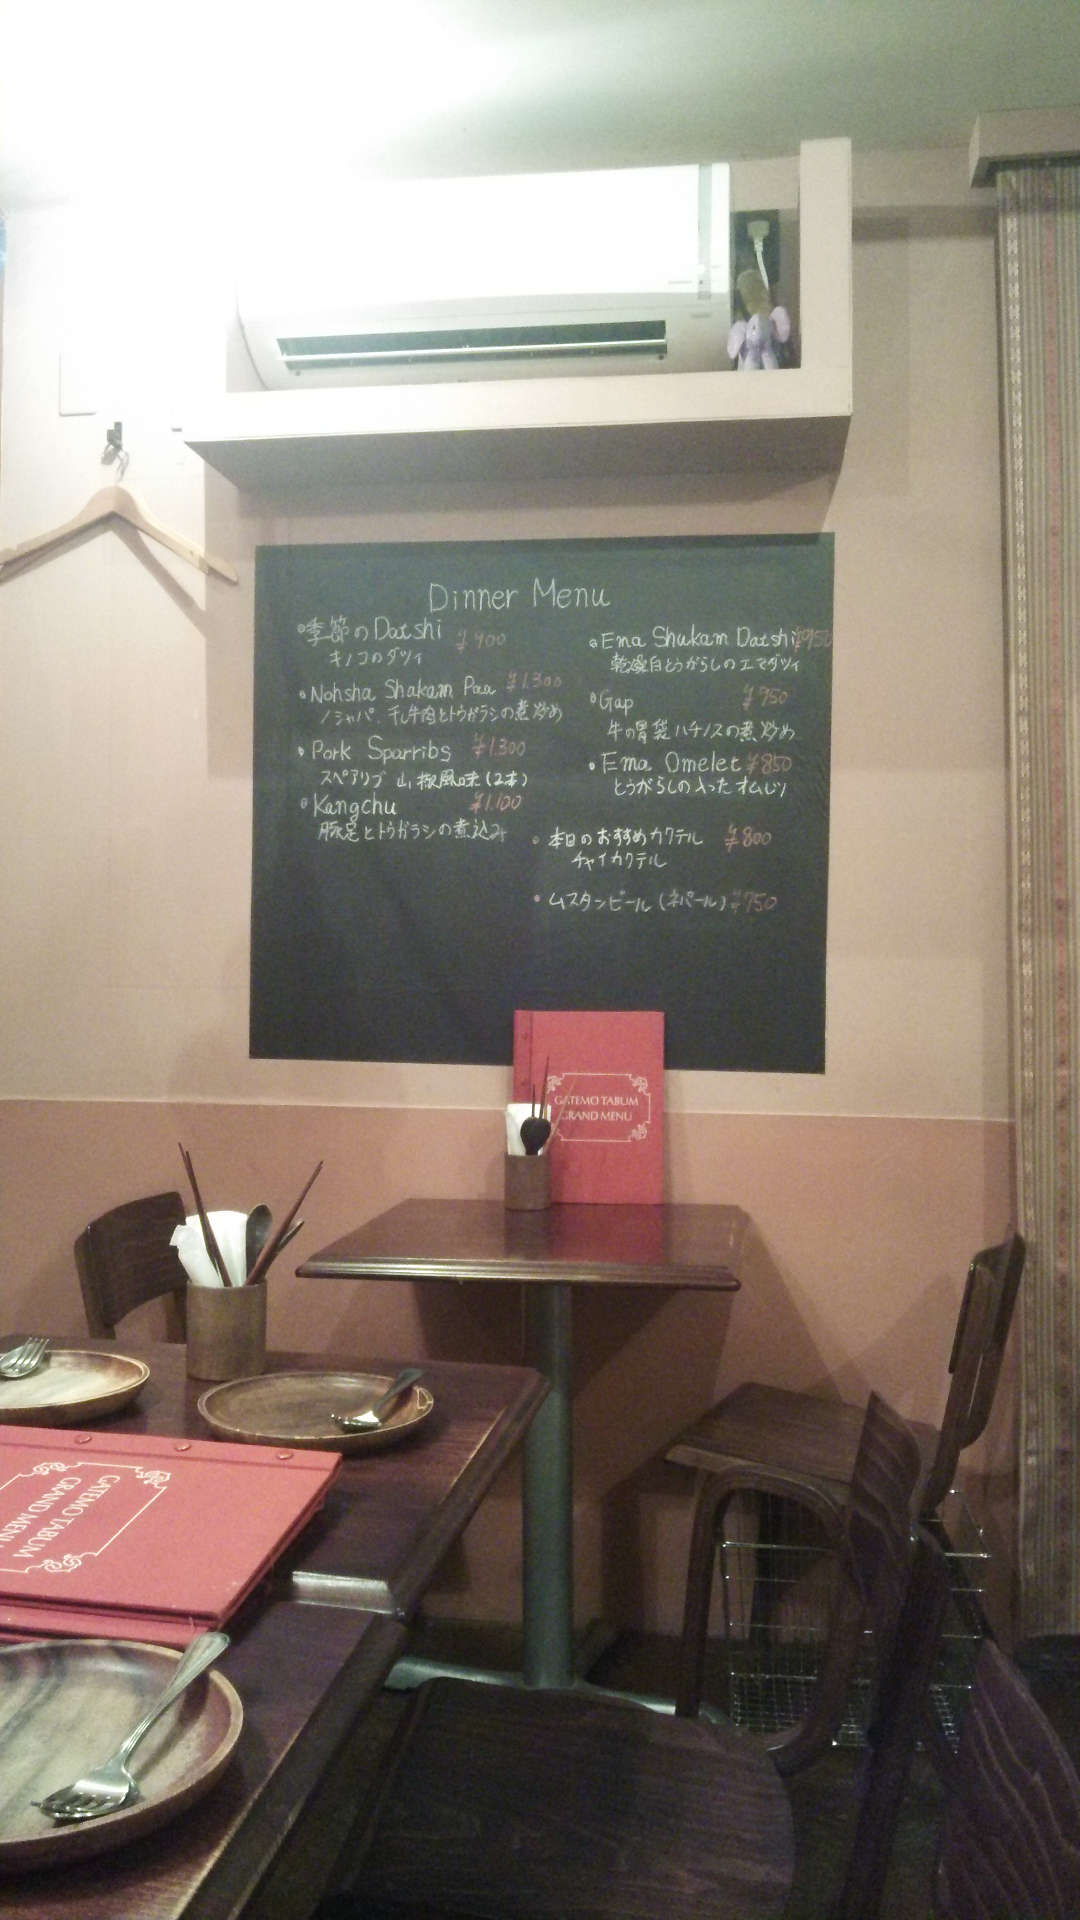 Dinner Menu
季節のDatshi ¥900
キノコのダツィ
Nohsha Shakam Paa ¥1.300
ノシャパ 干し牛肉とトウガラシの煮炒め
Pork Sparribs ¥1.300
スペアリブ 山椒風味(2本)
Kangchu ¥1.100
豚足とトウガラシの煮込み
Ema Shukam Datshi ¥950
乾燥白とうがらしのエマダツィ
Gap ¥950
牛の胃袋ハチノスの煮炒め
Ema Omelet ¥850
とうがらしの入ったオムレツ
本日のおすすめカクテル ¥800
チャイカクテル
ムスタンビール(ネパール) ¥750
GATEMO TABUM
GRAND MENU
GATEMO TABUM
GRAND MENU